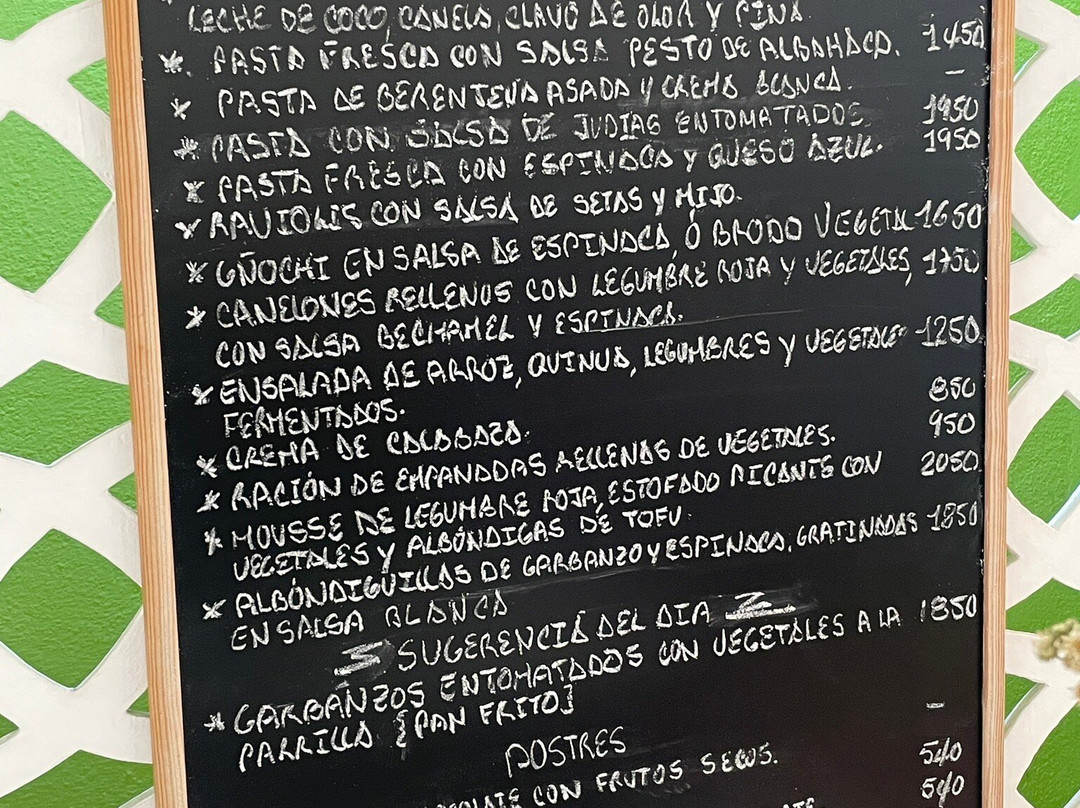 LECHE DE COCO, CANELA, CLAVO DE OLOR Y PIÑA.
* PASTA FRESCA CON SALSA PESTO DE ALBAHACA. 1450
* PASTA DE BERENJENA ASADA Y CREMA BLANCA. —
* PASTA CON SALSA DE JUDIAS ENTOMATADOS. 1950
* PASTA FRESCA CON ESPINACA Y QUESO AZUL. 1950
* RAVIOLIS CON SALSA DE SETAS Y MIJO.
* GÑOCHI EN SALSA DE ESPINACA, O BRODO VEGETAL 1650
* CANELONES RELLENOS CON LEGUMBRE ROJA Y VEGETALES, 1750
CON SALSA BECHAMEL Y ESPINACA.
* ENSALADA DE ARROZ, QUINUA, LEGUMBRES Y VEGETALES 1250
FERMENTADOS.
* CREMA DE CALABAZA. 850
* RACIÓN DE EMPANADAS RELLENAS DE VEGETALES. 950
* MOUSSE DE LEGUMBRE ROJA, ESTOFADO PICANTE CON 2050
VEGETALES Y ALBÓNDIGAS DE TOFU.
* ALBÓNDIGUILLAS DE GARBANZO Y ESPINACA, GRATINADAS 1850
EN SALSA BLANCA
SUGERENCIA DEL DIA
* GARBANZOS ENTOMATADOS CON VEGETALES A LA 1850
PARRILLA {PAN FRITO}
POSTRES —
CON FRUTOS SECOS. 540
540